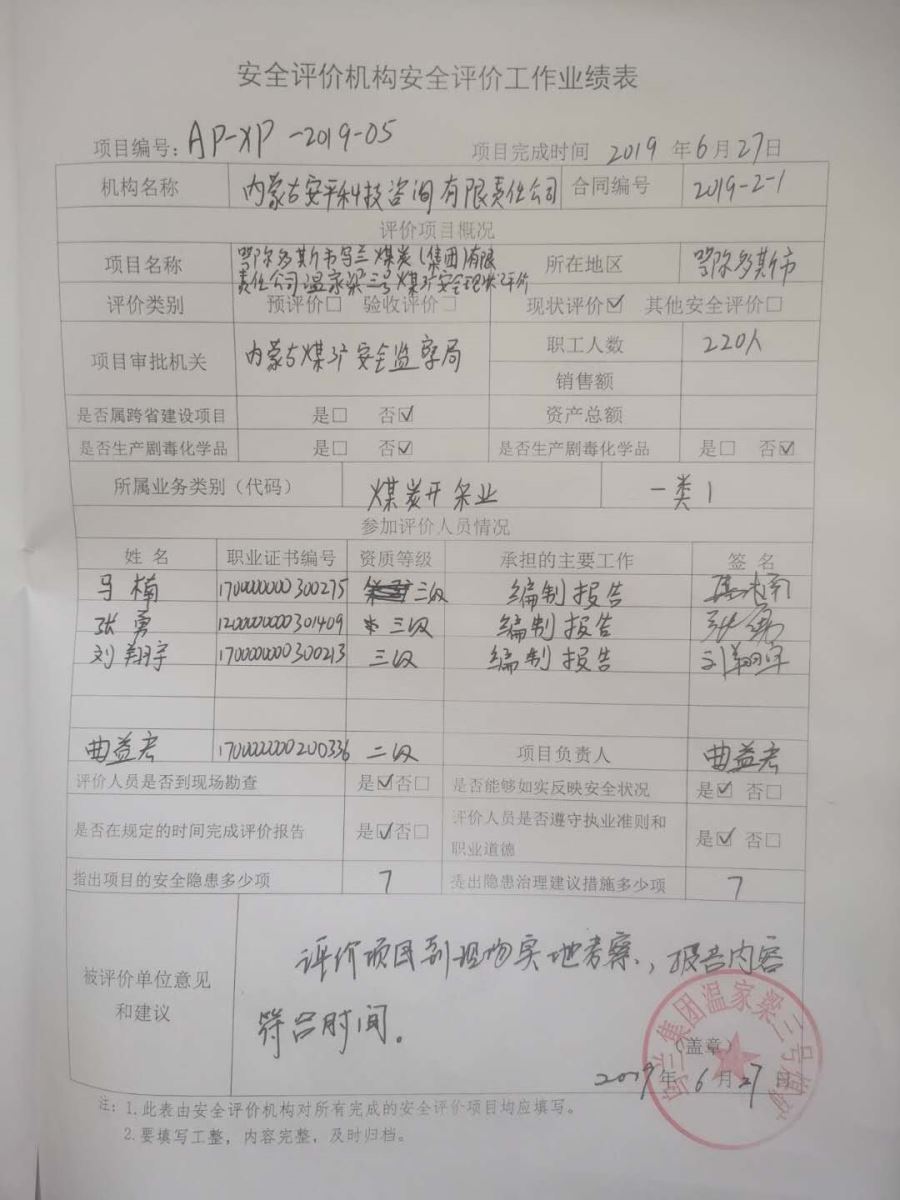 安全评价机构安全评价工作业绩表
项目编号：AP-XP-2019-05 项目完成时间 2019 年 6 月 27 日
机构名称 内蒙古安平科技咨询有限责任公司 合同编号 2019-2-1
评价项目概况
项目名称 鄂尔多斯市乌兰煤炭(集团)有限 所在地区 鄂尔多斯市
责任公司温家梁三号煤矿安全现状评价
评价类别 预评价□ 验收评价□ 现状评价☑ 其他安全评价□
项目审批机关 内蒙古煤矿安全监察局 职工人数 220人
销售额
是否属跨省建设项目 是□ 否☑ 资产总额
是否生产剧毒化学品 是□ 否☑ 是否生产剧毒化学品 是□ 否☑
所属业务类别（代码） 煤炭开采业 一类1
参加评价人员情况
姓 名 职业证书编号 资质等级 承担的主要工作 签 名
马楠 1700000000300275 三级 编制报告
张勇 1200000000301409 三级 编制报告 张勇
刘翔宇 1700000000300213 三级 编制报告 刘翔宇
曲益宏 1700000000200336 二级 项目负责人 曲益宏
评价人员是否到现场勘查 是☑否□ 是否能够如实反映安全状况 是☑ 否□
是否在规定的时间完成评价报告 是☑否□ 评价人员是否遵守执业准则和
职业道德 是☑ 否□
指出项目的安全隐患多少项 7 提出隐患治理建议措施多少项 7
被评价单位意见
和建议
评价项目到现场实地考察，报告内容
符合时间。
乌兰集团温家梁三号煤矿
（盖章）
2019 年 6 月 27 日
注：1.此表由安全评价机构对所有完成的安全评价项目均应填写。
2.要填写工整，内容完整，及时归档。